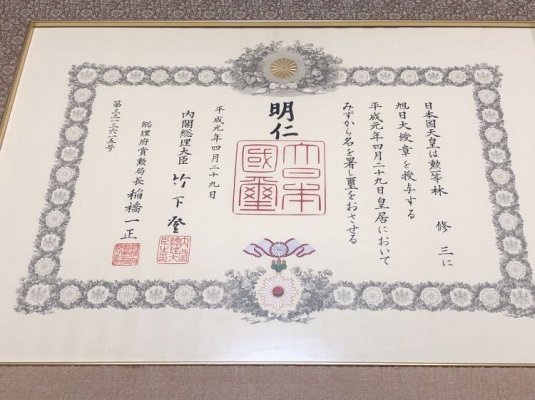 日本国天皇は勲一等林 修三に
旭日大綬章を授与する
平成元年四月二十九日皇居において
みずから名を署し璽をおさせる
明仁
大日本國璽
平成元年四月二十九日
内閣総理大臣 竹下登
内閣総理大臣之印
総理府賞勲局長 稲橋一正